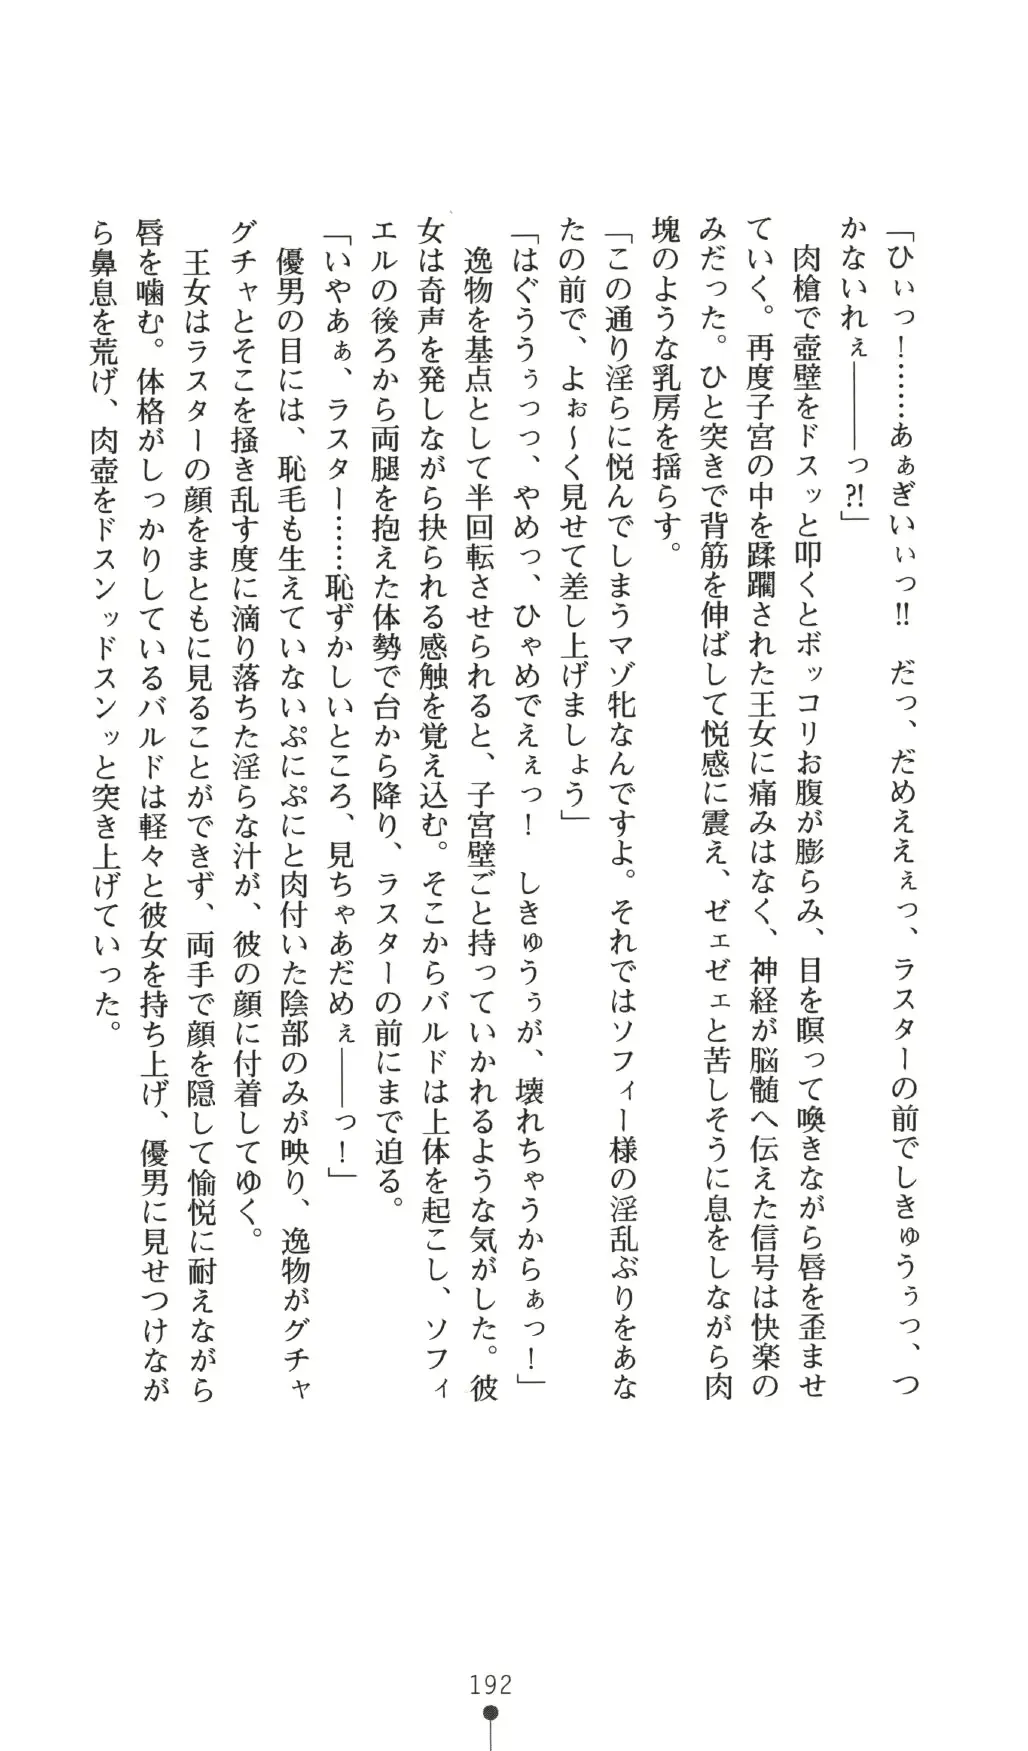 「ひぃっ！……あぁぎいぃっ!!　だっ、だめええぇっ、ラスターの前でしきゅうぅっ、つ
かないれぇ――っ?!」
　肉槍で壺壁をドスッと叩くとボッコリお腹が膨らみ、目を瞑って喚きながら唇を歪ませ
ていく。再度子宮の中を蹂躙された王女に痛みはなく、神経が脳髄へ伝えた信号は快楽の
みだった。ひと突きで背筋を伸ばして悦感に震え、ゼェゼェと苦しそうに息をしながら肉
塊のような乳房を揺らす。
「この通り淫らに悦んでしまうマゾ牝なんですよ。それではソフィー様の淫乱ぶりをあな
たの前で、よぉ～く見せて差し上げましょう」
「はぐううぅっっ、やめっ、ひゃめでえぇっ！　しきゅうぅが、壊れちゃうからぁっ！」
　逸物を基点として半回転させられると、子宮壁ごと持っていかれるような気がした。彼
女は奇声を発しながら抉られる感触を覚え込む。そこからバルドは上体を起こし、ソフィ
エルの後ろから両腿を抱えた体勢で台から降り、ラスターの前にまで迫る。
「いやあぁ、ラスター……恥ずかしいところ、見ちゃあだめぇ――っ！」
　優男の目には、恥毛も生えていないぷにぷにと肉付いた陰部のみが映り、逸物がグチャ
グチャとそこを掻き乱す度に滴り落ちた淫らな汁が、彼の顔に付着してゆく。
　王女はラスターの顔をまともに見ることができず、両手で顔を隠して愉悦に耐えながら
唇を噛む。体格がしっかりしているバルドは軽々と彼女を持ち上げ、優男に見せつけなが
ら鼻息を荒げ、肉壺をドスンッドスンッと突き上げていった。
192